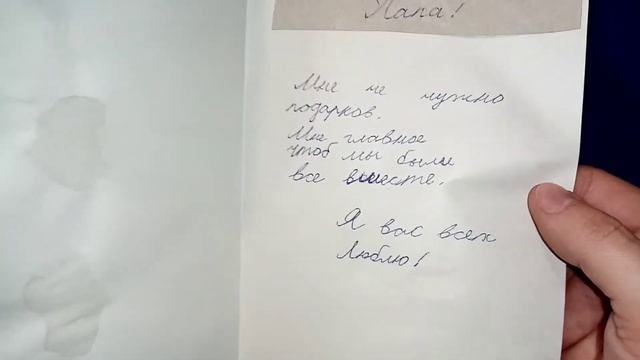 Папа!
Мне не нужно
подарков.
Мне главное
чтоб мы были
все вместе.
Я вас всех
Люблю!